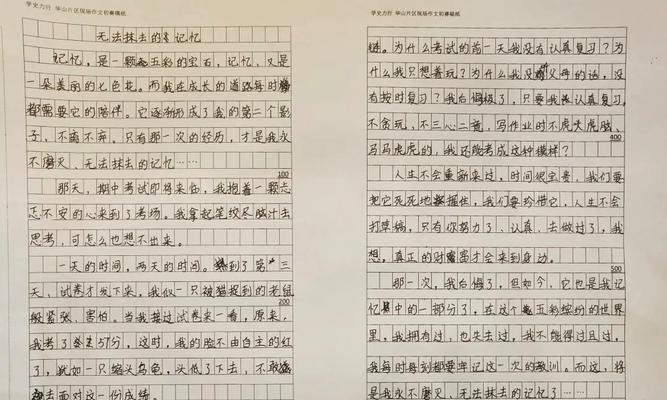 学史力行 华山片区现场作文初赛稿纸
无法抹去的记忆
记忆。是一颗五彩的宝石,记忆,又是
一朵美丽的七色花。而我在成长的道路每时
都需要它的陪伴。它逐渐形成了我的第二个影
子,不离不弃。只有那一次的经历,才是我永
不磨灭、无法抹去的记忆……
100
那天,期中考试即将来临,我抱着一颗忐
忑不安的心来到了考场。我拿起笔绞尽脑汁去
思考,可怎么也想不出来。
一天的时间,两天的时间。到了第三
天,试卷才发下来,我似一只被猫捉到的老鼠
200
般紧张、害怕。当我接过试卷来一看,原来,
我考了57分,这时,我的脸不由自主的红
了,犹如一只缩头乌龟,头低了下去,不敢
去面对这一份成绩。
学史力行 华山片区现场作文初赛稿纸
为什么考试的前一天我没有认真复习?为
什么我只想着玩?为什么我没父母的话,没
有按时复习?我后悔极了,只要我认真复习,
不贪玩,不三心二意,写作业时不虎头虎脑、
400
马马虎虎的,我还能考成这种模样?
人生不会重新来过,时间很宝贵,我们要
把它死死地握住,我们要珍惜它,人生不会
打草稿,只有你努力了、认真、去做过了,我
想,真正的财富才会来到身边。
500
那一次,我后悔了,但如今,它也是我记
忆中的一部分了,在这个五彩缤纷的世界
里,我拥有过,也失去过,我不能得过且过,
我每时每刻都要牢记这一次的教训。而这,将
是我永不磨灭、无法抹去的记忆了……